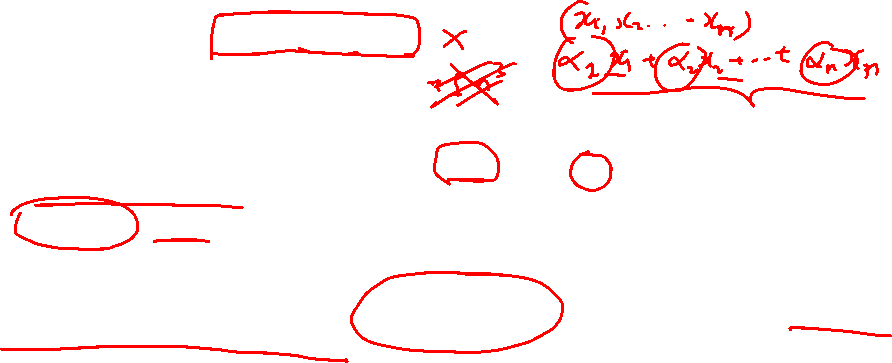 x (x₁, x₂ ... - xₙ)
α₁x₁ + α₂x₂ + ... + αₙxₙ